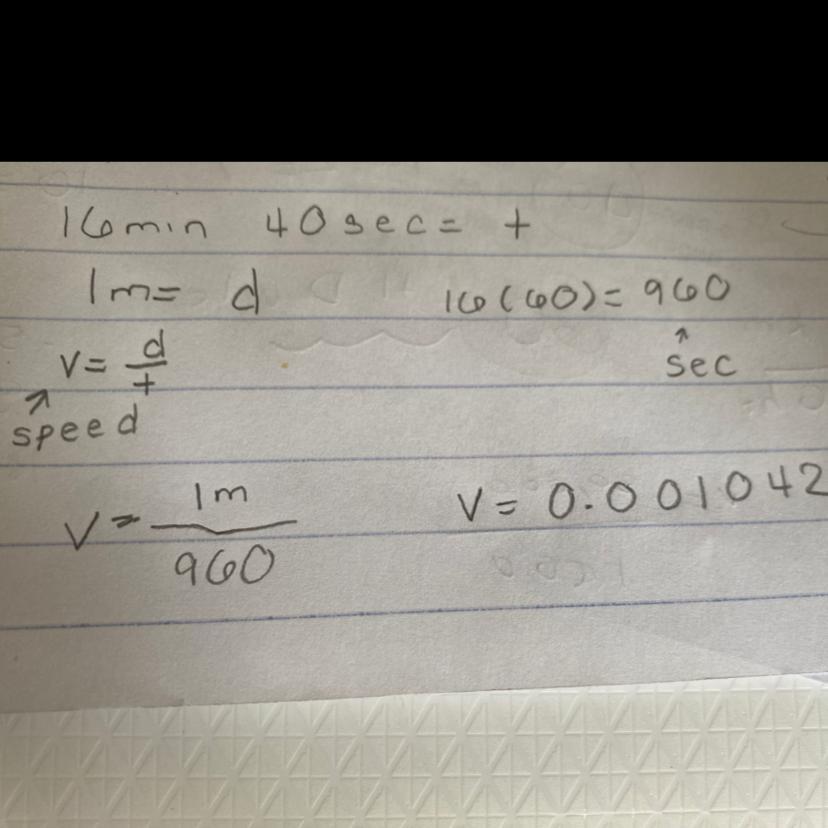 16 min 40 sec = t
1m = d 16(60) = 960
↑
sec
v = d/t
↗
speed
V = 1m/960 V = 0.001042